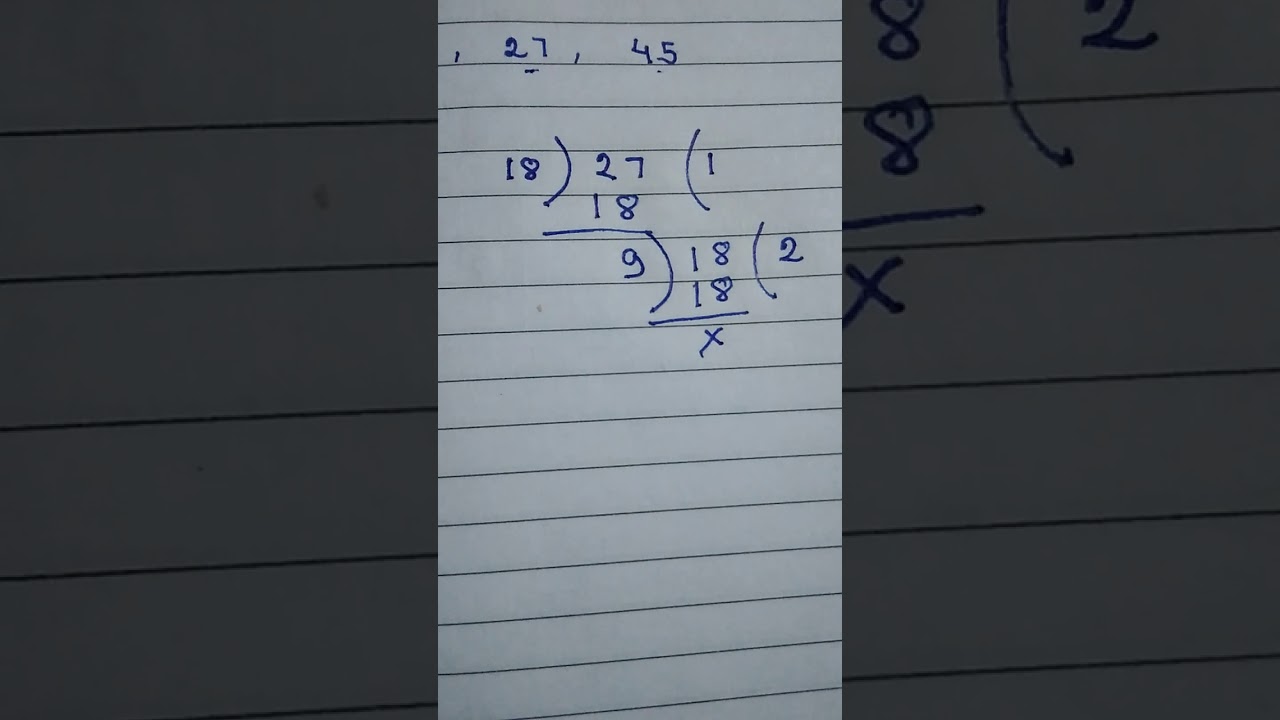 , 27 , 45
18 ) 27 ( 1
18
9 ) 18 ( 2
18
x
8 ( 2
8
x